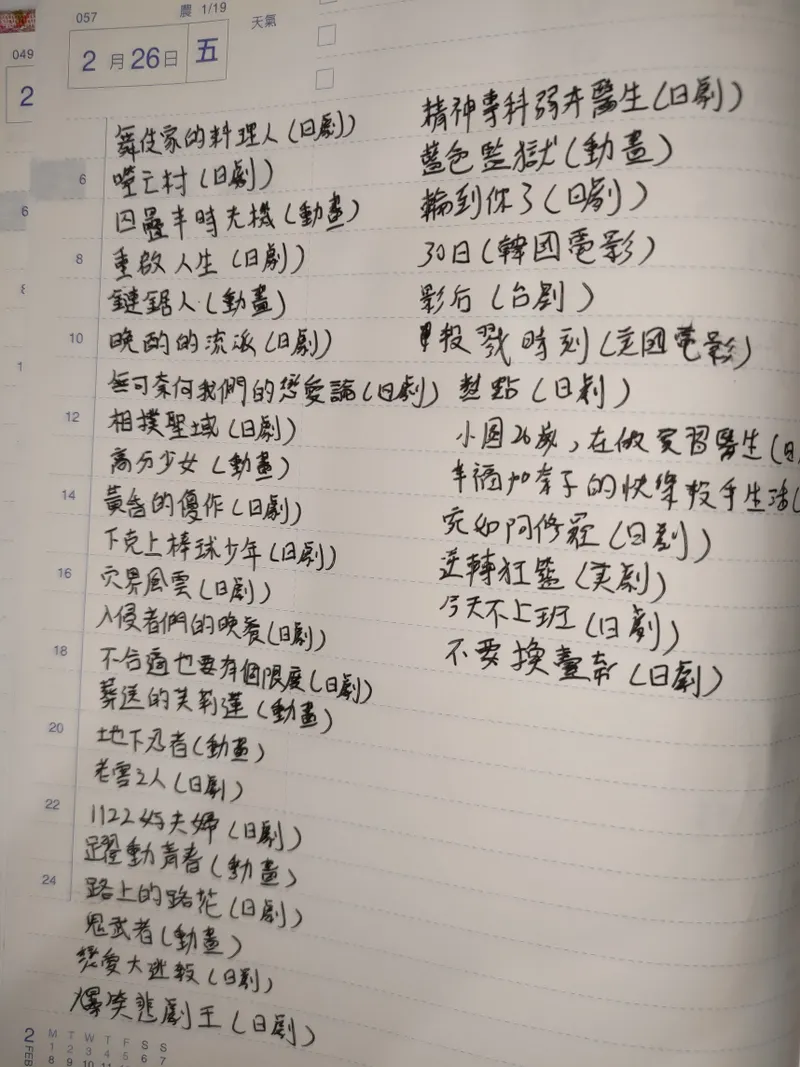 057
農 1/19
天氣
2月26日 五
049
2
舞伎家的料理人(日劇)
6
噤亡村(日劇)
四疊半時光機(動畫)
8
重啟人生(日劇)
鏈鋸人(動畫)
10
晚酌的流派(日劇)
無可奈何我們的戀愛論(日劇)
12
相撲聖域(日劇)
高分少女(動畫)
14
黃昏的優作(日劇)
下克上棒球少年(日劇)
16
穴界風雲(日劇)
入侵者們的晚餐(日劇)
18
不合適也要有個限度(日劇)
葬送的芙莉蓮(動畫)
20
地下忍者(動畫)
老雪2人(日劇)
22
1122好夫婦(日劇)
躍動青春(動畫)
24
路上的路花(日劇)
鬼武者(動畫)
戀愛大逃殺(日劇)
爆笑悲劇王(日劇)
精神專科弱井醫生(日劇)
藍色監獄(動畫)
輪到你了(日劇)
30日(韓國電影)
影后(台劇)
投戮時刻(美國電影)
熱點(日劇)
小國26歲,在做實習醫生(日
幸福加奈子的快樂殺手生活(
宛如阿修羅(日劇)
逆轉狂籃(美劇)
今天不上班(日劇)
不要換臺奔(日劇)
2 FEB
M T W T F S S
1 2 3 4 5 6 7
8 9 10 11